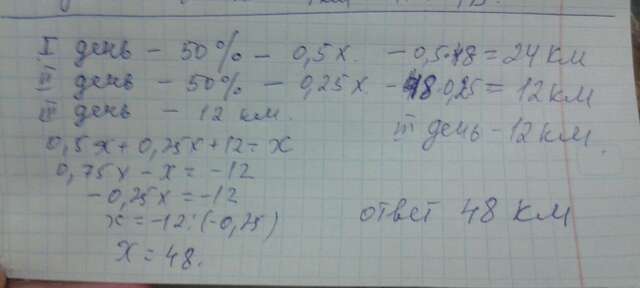 I день - 50% - 0,5x. - 0,5·48 = 24 км
II день - 50% - 0,25x - 48·0,25 = 12 км
III день - 12 км.
III день - 12 км.
0,5x + 0,25x + 12 = x
0,75x - x = -12
-0,25x = -12
x = -12:(-0,25)
x = 48.
ответ 48 км